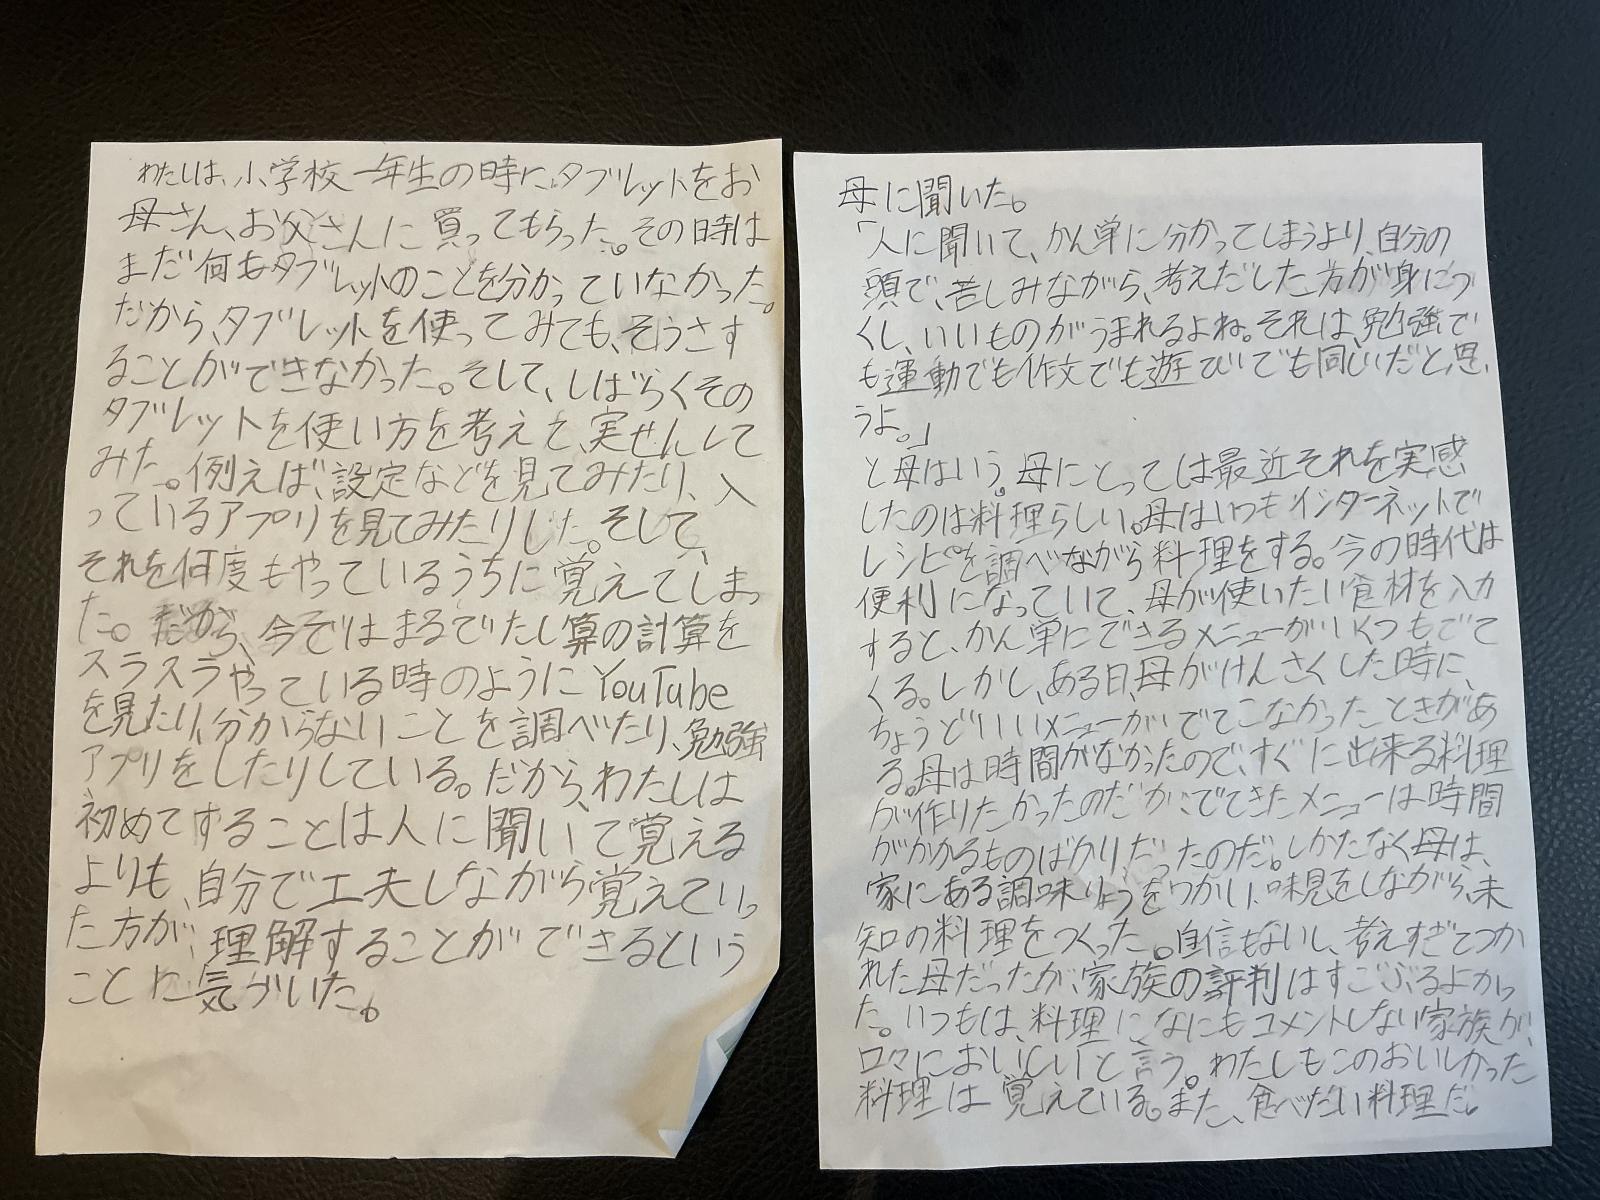 わたしは、小学校一年生の時に、タブレットをお
母さん、お父さんに買ってもらった。その時は
まだ何もタブレットのことを分かっていなかった。
だから、タブレットを使ってみても、そうさす
ることができなかった。そして、しばらくその
タブレットを使い方を考えて、実せんして
みた。例えば、設定などを見てみたり、入
っているアプリを見てみたりした。そして、
それを何度もやっているうちに覚えてしまっ
た。だから、今ではまるでたし算の計算を
スラスラやっている時のようにYouTube
を見たり、分からないことを調べたり、勉強
アプリをしたりしている。だから、わたしは
初めてすることは人に聞いて覚える
よりも、自分で工夫しながら覚えていっ
た方が、理解することができるという
ことに気づいた。
母に聞いた。
「人に聞いて、かん単に分かってしまうより、自分の
頭で、苦しみながら、考えだした方が身につ
くし、いいものがうまれるよね。それは、勉強で
も運動でも作文でも遊びいでも同じいだと思
うよ。」
と母はいう。母にとっては最近それを実感
したのは料理らしい。母はいつもインターネットで
レシピを調べながら料理をする。今の時代は
便利になっていて、母が使いたい食材を入力
すると、かん単にできるメニューがいくつもでて
くる。しかし、ある日、母がけんさくした時に、
ちょうどいいメニューがでてこなかったときがあ
る。母は時間がなかったので、すぐに出来る料理
が作りたかったのだが、でてきたメニューは時間
がかかるものばかりだったのだ。しかたなく母は、
家にある調味りょうをつかい、味見をしながら、未
知の料理をつくった。自信もないし、考えすぎてつか
れた母だったが、家族の評判はすこぶるよかっ
た。いつもは、料理に、なにもコメントしない家族が、
口々においしいと言う。わたしもこのおいしかった
料理は覚えている。また、食べたい料理だ。